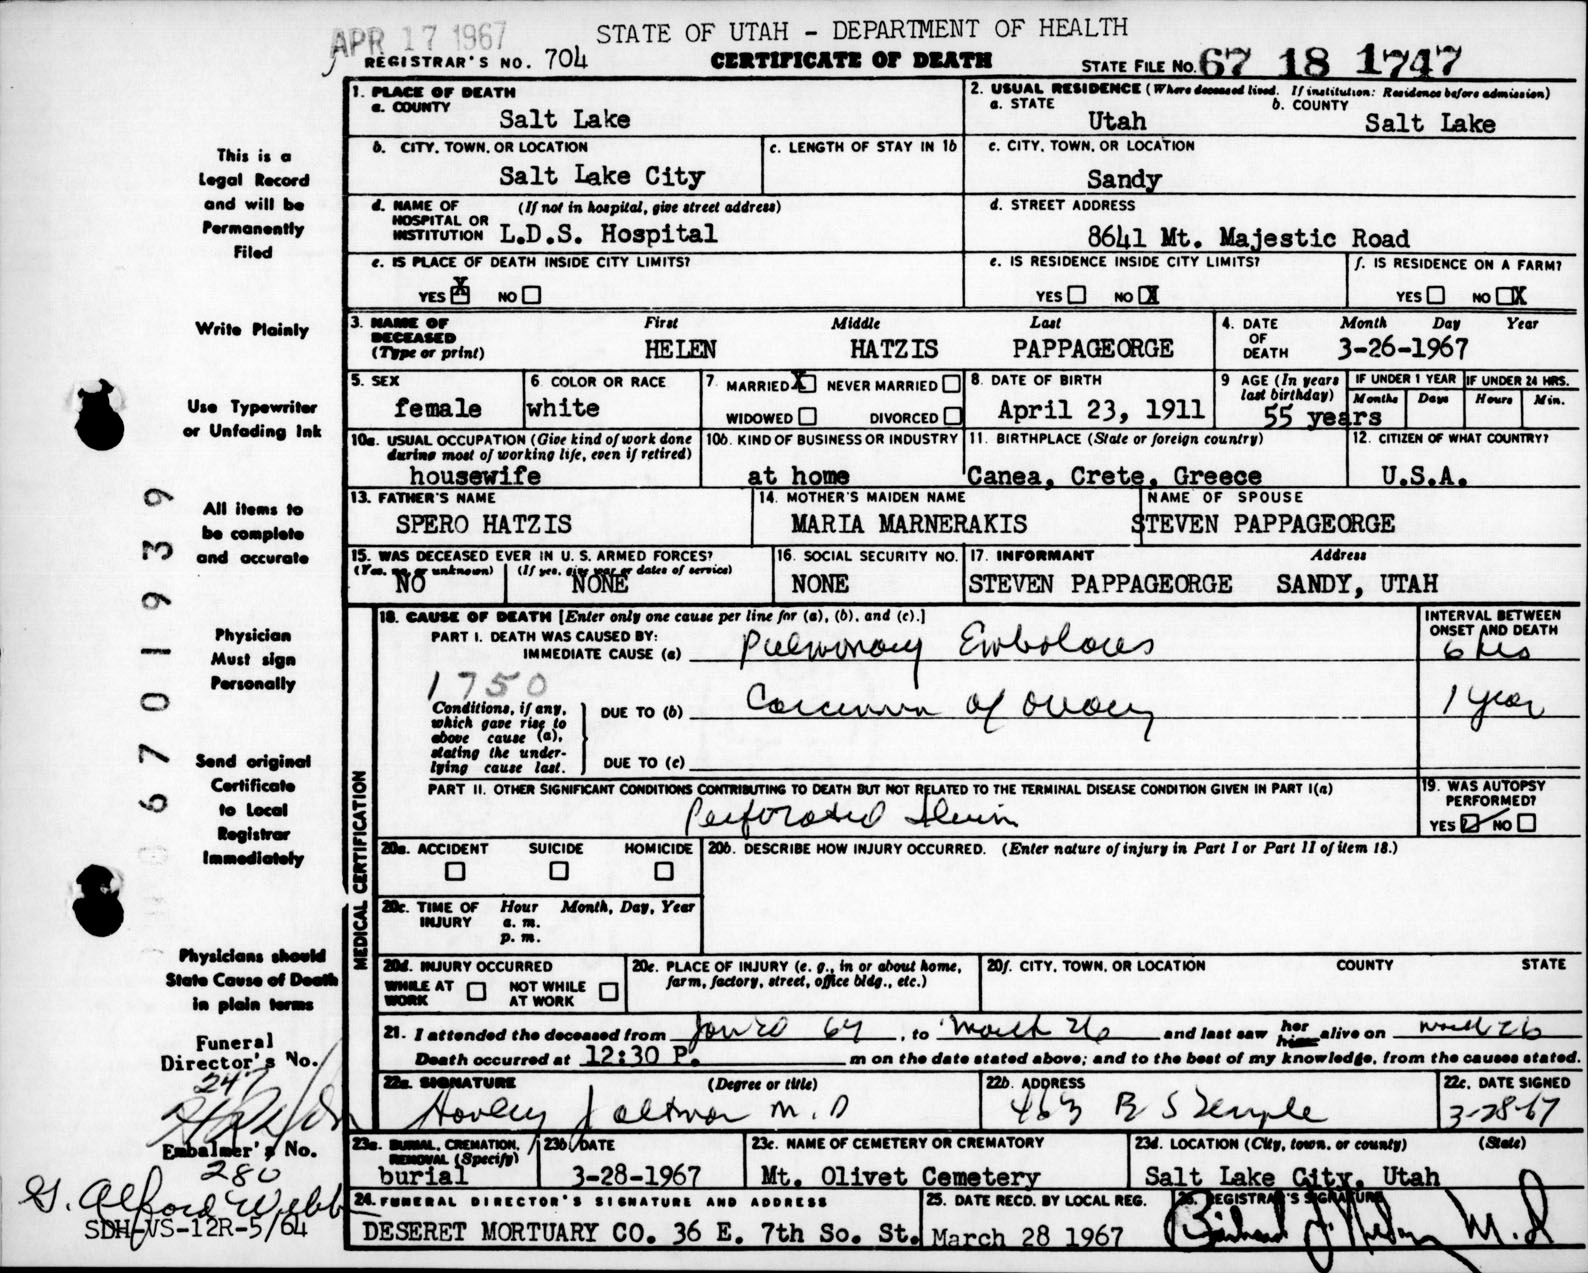 APR 17 1967
STATE OF UTAH - DEPARTMENT OF HEALTH
REGISTRAR'S NO. 704
CERTIFICATE OF DEATH
STATE FILE NO. 67 18 1747
This is a
Legal Record
and will be
Permanently
Filed
Write Plainly
Use Typewriter
or Unfading Ink
All items to
be complete
and accurate
Physician
Must sign
Personally
Send original
Certificate
to Local
Registrar
Immediately
Physicians should
State Cause of Death
in plain terms
Funeral
Director's No.
247
Embalmer's No.
280
G. Alford Webb
SDH-VS-12R-5/64
06701939
1. PLACE OF DEATH
a. COUNTY
Salt Lake
2. USUAL RESIDENCE (Where deceased lived. If institution: Residence before admission)
a. STATE
Utah
b. COUNTY
Salt Lake
b. CITY, TOWN, OR LOCATION
Salt Lake City
c. LENGTH OF STAY IN 1b
c. CITY, TOWN, OR LOCATION
Sandy
d. NAME OF HOSPITAL OR INSTITUTION (If not in hospital, give street address)
L.D.S. Hospital
d. STREET ADDRESS
8641 Mt. Majestic Road
e. IS PLACE OF DEATH INSIDE CITY LIMITS?
YES X NO
e. IS RESIDENCE INSIDE CITY LIMITS?
YES NO X
f. IS RESIDENCE ON A FARM?
YES NO X
3. NAME OF DECEASED (Type or print)
First Middle Last
HELEN HATZIS PAPPAGEORGE
4. DATE OF DEATH
Month Day Year
3-26-1967
5. SEX
female
6. COLOR OR RACE
white
7. MARRIED X NEVER MARRIED
WIDOWED DIVORCED
8. DATE OF BIRTH
April 23, 1911
9 AGE (In years last birthday)
55 years
IF UNDER 1 YEAR
Months Days
IF UNDER 24 HRS.
Hours Min.
10a. USUAL OCCUPATION (Give kind of work done during most of working life, even if retired)
housewife
10b. KIND OF BUSINESS OR INDUSTRY
at home
11. BIRTHPLACE (State or foreign country)
Canea, Crete, Greece
12. CITIZEN OF WHAT COUNTRY?
U.S.A.
13. FATHER'S NAME
SPERO HATZIS
14. MOTHER'S MAIDEN NAME
MARIA MARNERAKIS
NAME OF SPOUSE
STEVEN PAPPAGEORGE
15. WAS DECEASED EVER IN U. S. ARMED FORCES?
(Yes, no, or unknown) (If yes, give war or dates of service)
NO NONE
16. SOCIAL SECURITY NO.
NONE
17. INFORMANT Address
STEVEN PAPPAGEORGE SANDY, UTAH
MEDICAL CERTIFICATION
18. CAUSE OF DEATH [Enter only one cause per line for (a), (b), and (c).]
INTERVAL BETWEEN ONSET AND DEATH
PART I. DEATH WAS CAUSED BY:
IMMEDIATE CAUSE (a) Pulmonary Embolous
6 hrs
1750
Conditions, if any, which gave rise to above cause (a), stating the underlying cause last.
DUE TO (b) Carcinoma of ovary
1 year
DUE TO (c)
PART II. OTHER SIGNIFICANT CONDITIONS CONTRIBUTING TO DEATH BUT NOT RELATED TO THE TERMINAL DISEASE CONDITION GIVEN IN PART I(a)
Perforated
19. WAS AUTOPSY PERFORMED?
YES NO
20a. ACCIDENT SUICIDE HOMICIDE
20b. DESCRIBE HOW INJURY OCCURRED. (Enter nature of injury in Part I or Part II of item 18.)
20c. TIME OF INJURY Hour Month, Day, Year
a. m.
p. m.
20d. INJURY OCCURRED
WHILE AT WORK NOT WHILE AT WORK
20e. PLACE OF INJURY (e. g., in or about home, farm, factory, street, office bldg., etc.)
20f. CITY, TOWN, OR LOCATION COUNTY STATE
21. I attended the deceased from Jan 20 67, to March 26 and last saw her him alive on March 26
Death occurred at 12:30 P. m on the date stated above; and to the best of my knowledge, from the causes stated.
22a. SIGNATURE (Degree or title)
M.D
22b. ADDRESS
463 E S Temple
22c. DATE SIGNED
3-28-67
23a. BURIAL, CREMATION, REMOVAL (Specify)
burial
23b DATE
3-28-1967
23c. NAME OF CEMETERY OR CREMATORY
Mt. Olivet Cemetery
23d. LOCATION (City, town, or county) (State)
Salt Lake City, Utah
24. FUNERAL DIRECTOR'S SIGNATURE AND ADDRESS
DESERET MORTUARY CO. 36 E. 7th So. St.
25. DATE RECD. BY LOCAL REG.
March 28 1967
26. REGISTRAR'S SIGNATURE
M.D